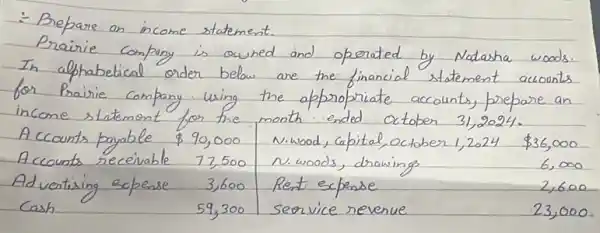 ÷ Prepare an income statement.
Prairie Company is owned and operated by Natasha woods.
In alphabetical order below are the financial statement accounts
for Prairie Company using the appropriate accounts, prepare an
income statement for the month ended october 31, 2024.
Accounts payable $ 90,000 N. wood, Capital, October 1, 2024 $36,000
Accounts receivable 77,500 N. woods, drawings 6,000
Advertising expense 3,600 Rent expense 2,600
Cash 59,300 seorvice revenue 23,000.